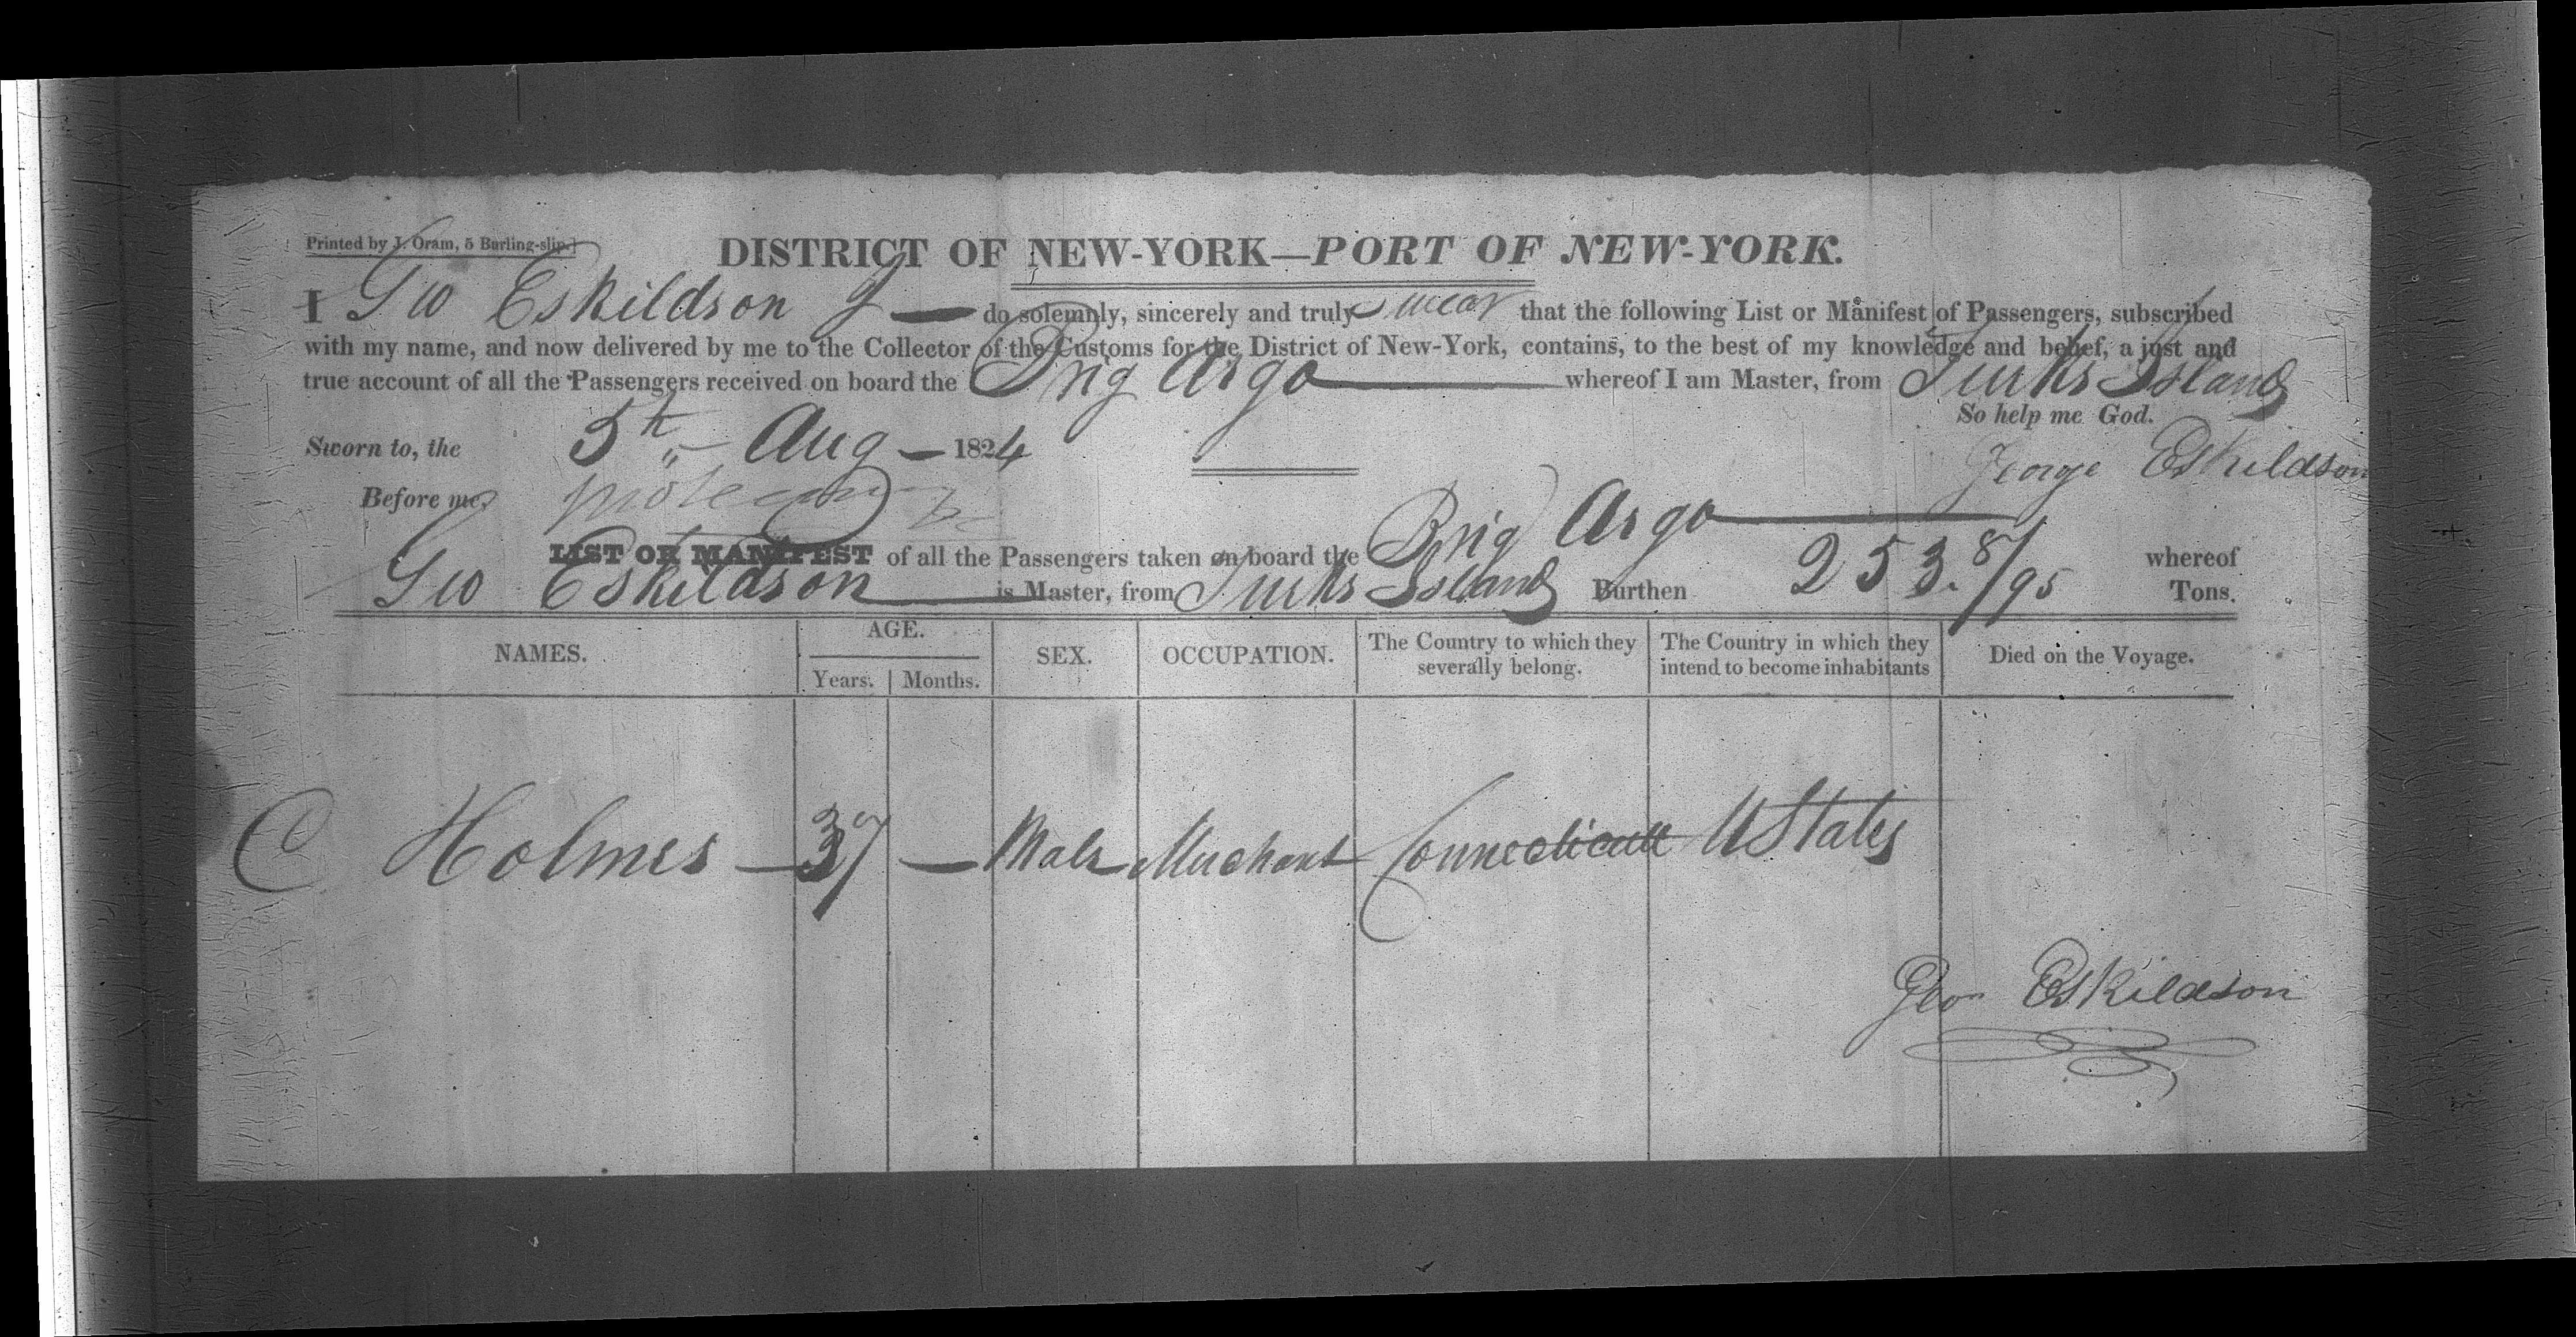 Printed by J. Oram, 5 Burling-slip.]
DISTRICT OF NEW-YORK—PORT OF NEW-YORK.
I Geo Eskildson do solemnly, sincerely and truly swear that the following List or Manifest of Passengers, subscribed
with my name, and now delivered by me to the Collector of the Customs for the District of New-York, contains, to the best of my knowledge and belief, a just and
true account of all the Passengers received on board the Brig Argo whereof I am Master, from Turks Island
So help me God.
Sworn to, the 5th Aug 1824
George Eskildson
Before me,
LIST OR MANIFEST of all the Passengers taken on board the Brig Argo whereof
Geo Eskildson is Master, from Turks Island Burthen 253. 8/95 Tons.
NAMES. AGE. Years. Months. SEX. OCCUPATION. The Country to which they severally belong. The Country in which they intend to become inhabitants Died on the Voyage.
C Holmes — 37 — Male Merchant Connecticutt U States
Geo Eskildson